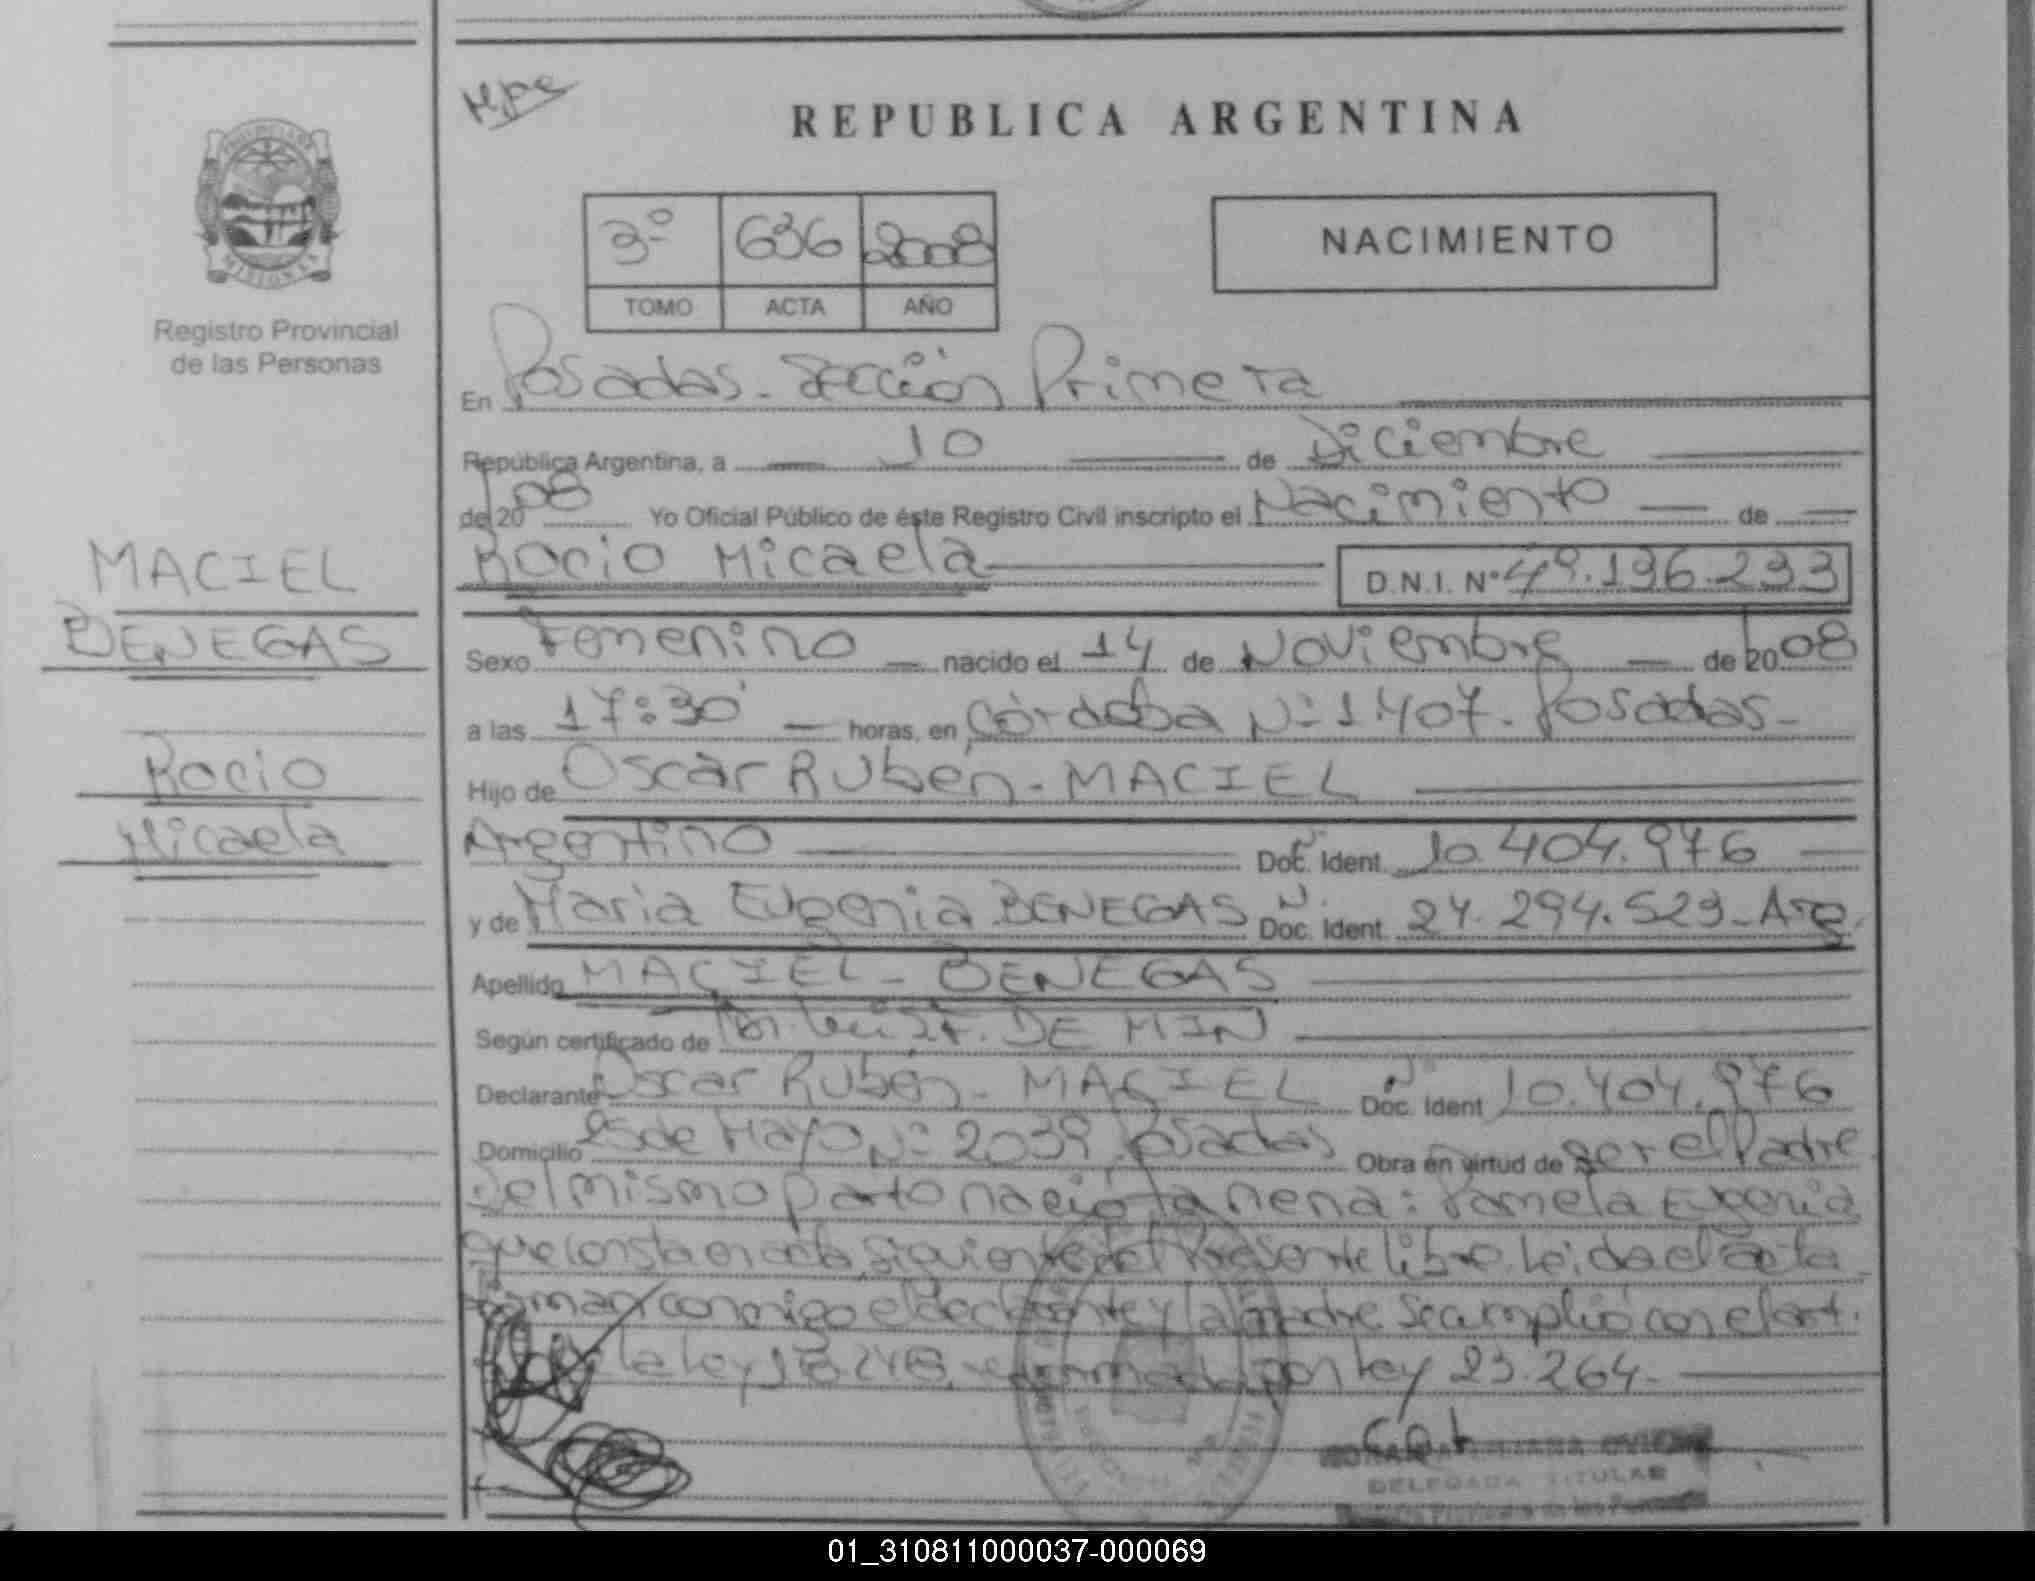 Mpc
REPUBLICA ARGENTINA
PROVINCIA DE
MISIONES
Registro Provincial
de las Personas
3º 636 2008
TOMO ACTA AÑO
NACIMIENTO
En Posadas - Sección Primera
República Argentina, a 10 de Diciembre
de 2008 Yo Oficial Público de éste Registro Civil inscripto el Nacimiento de
Rocio Micaela D.N.I. Nº 49.196.233
MACIEL
BENEGAS
Rocio
Micaela
Sexo Femenino nacido el 14 de Noviembre de 2008
a las 17:30 horas, en Córdoba Nº 1.407. Posadas-
Hijo de Oscar Rubén - MACIEL
Argentino Doc. Ident. Nº 10.404.976
y de Maria Eugenia BENEGAS Doc. Ident. N. 24.294.529 - Arg.
Apellido MACIEL - BENEGAS
Según certificado de DE MIN
Declarante Oscar Rubén - MACIEL Doc. Ident Nº 10.404.976
Domicilio 25 de Mayo Nº 2039 Posadas Obra en virtud de ser el Padre
Del mismo parto nació la nena: Pamela Eugenia
que consta en acta siguiente del Presente libro. Leida el acta
firman conmigo el declarante y la madre. Se cumplió con el art.
la Ley 18.248, reformada por Ley 23.264.-
DELEGADA TITULAR
Registro Provincial de las Personas
01_310811000037-000069